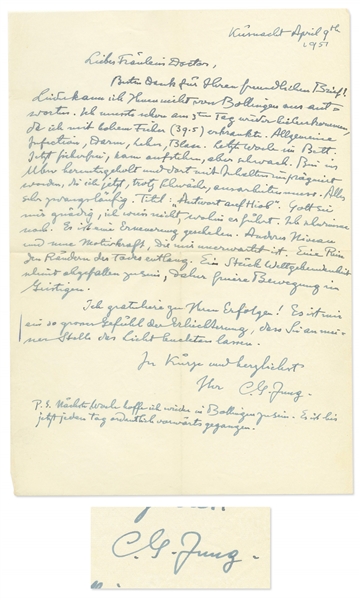 Küsnacht April 9th
1951
Liebes Fräulein Doctor,
Besten Dank für Ihren freundlichen Brief!
Leider kann ich Ihnen nicht von Bollingen aus ant-
worten. Ich musste schon am Tag wieder heimkommen,
da ich mit hohem Fieber (39.5) erkrankte. Allgemeine
Infection, Darm, Leber, Blase. Letzte Woche im Bett.
Jetzt fieberfrei, kann aufstehen, aber schwach. Bin in's
heruntergeholt und dort mit Inhalten imprägniert
worden, die ich jetzt, trotz Schwäche, ausarbeiten muss. Alles
sehr zwangsläufig. Titel: "Antwort auf Hiob". Gott sei
mir gnädig, ich weiss nicht, wohin es führt. Ich
noch. Es ist eine Erneuerung geschehen. Anderes Niveau
und neue Motivkraft, die mir unerwartet ist. Eine
den Rändern des Todes entlang. Ein Stück Weltgebundenheit
scheint abgefallen zu sein, daher freiere Bewegung im
Geistigen.
Ich gratuliere zu Ihren Erfolgen! Es ist mir
ein so grosses Gefühl der Erleichterung, dass Sie an mei-
ner Stelle das Licht leuchten lassen.
In Kürze und herzlichst
Ihr C. G. Jung.
P.S. Nächste Woche hoffe ich wieder in Bollingen zu sein. Es ist bis
jetzt jeden Tag ordentlich vorwärts gegangen.
C. G. Jung.